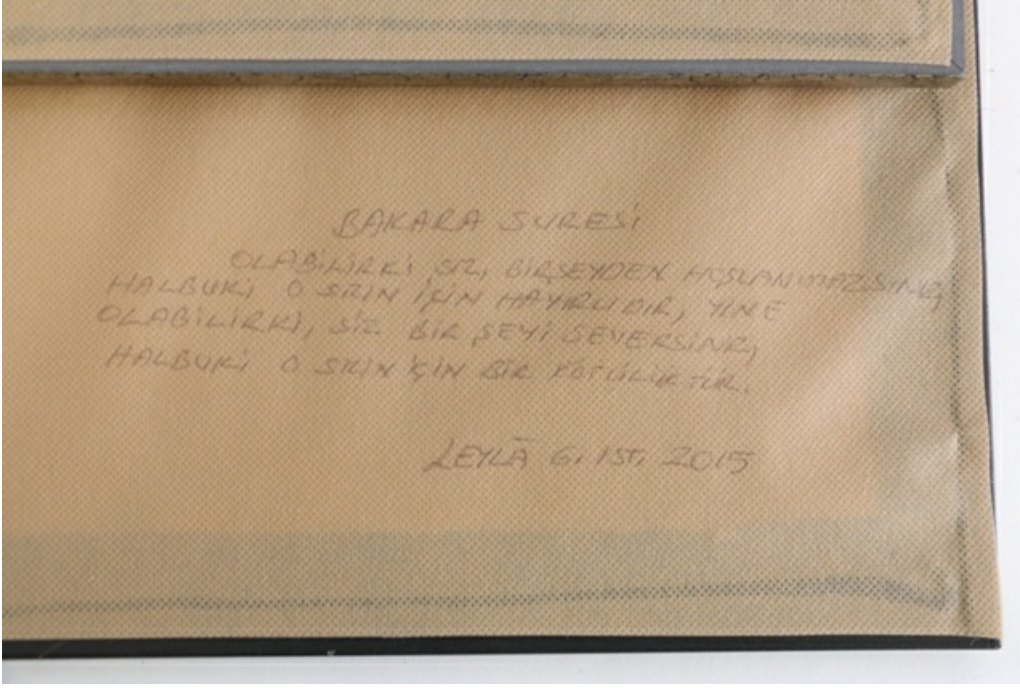 BAKARA SURESİ
OLABİLİRKİ, SİZ, BİRŞEYDEN HOŞLANMAZSINIZ,
HALBUKİ O SİZİN İÇİN HAYIRLIDIR, YİNE
OLABİLİRKİ, SİZ BİR ŞEYİ SEVERSİNİZ,
HALBUKİ O SİZİN İÇİN BİR KÖTÜLÜKTÜR.
LEYLÂ G. İST. 2015